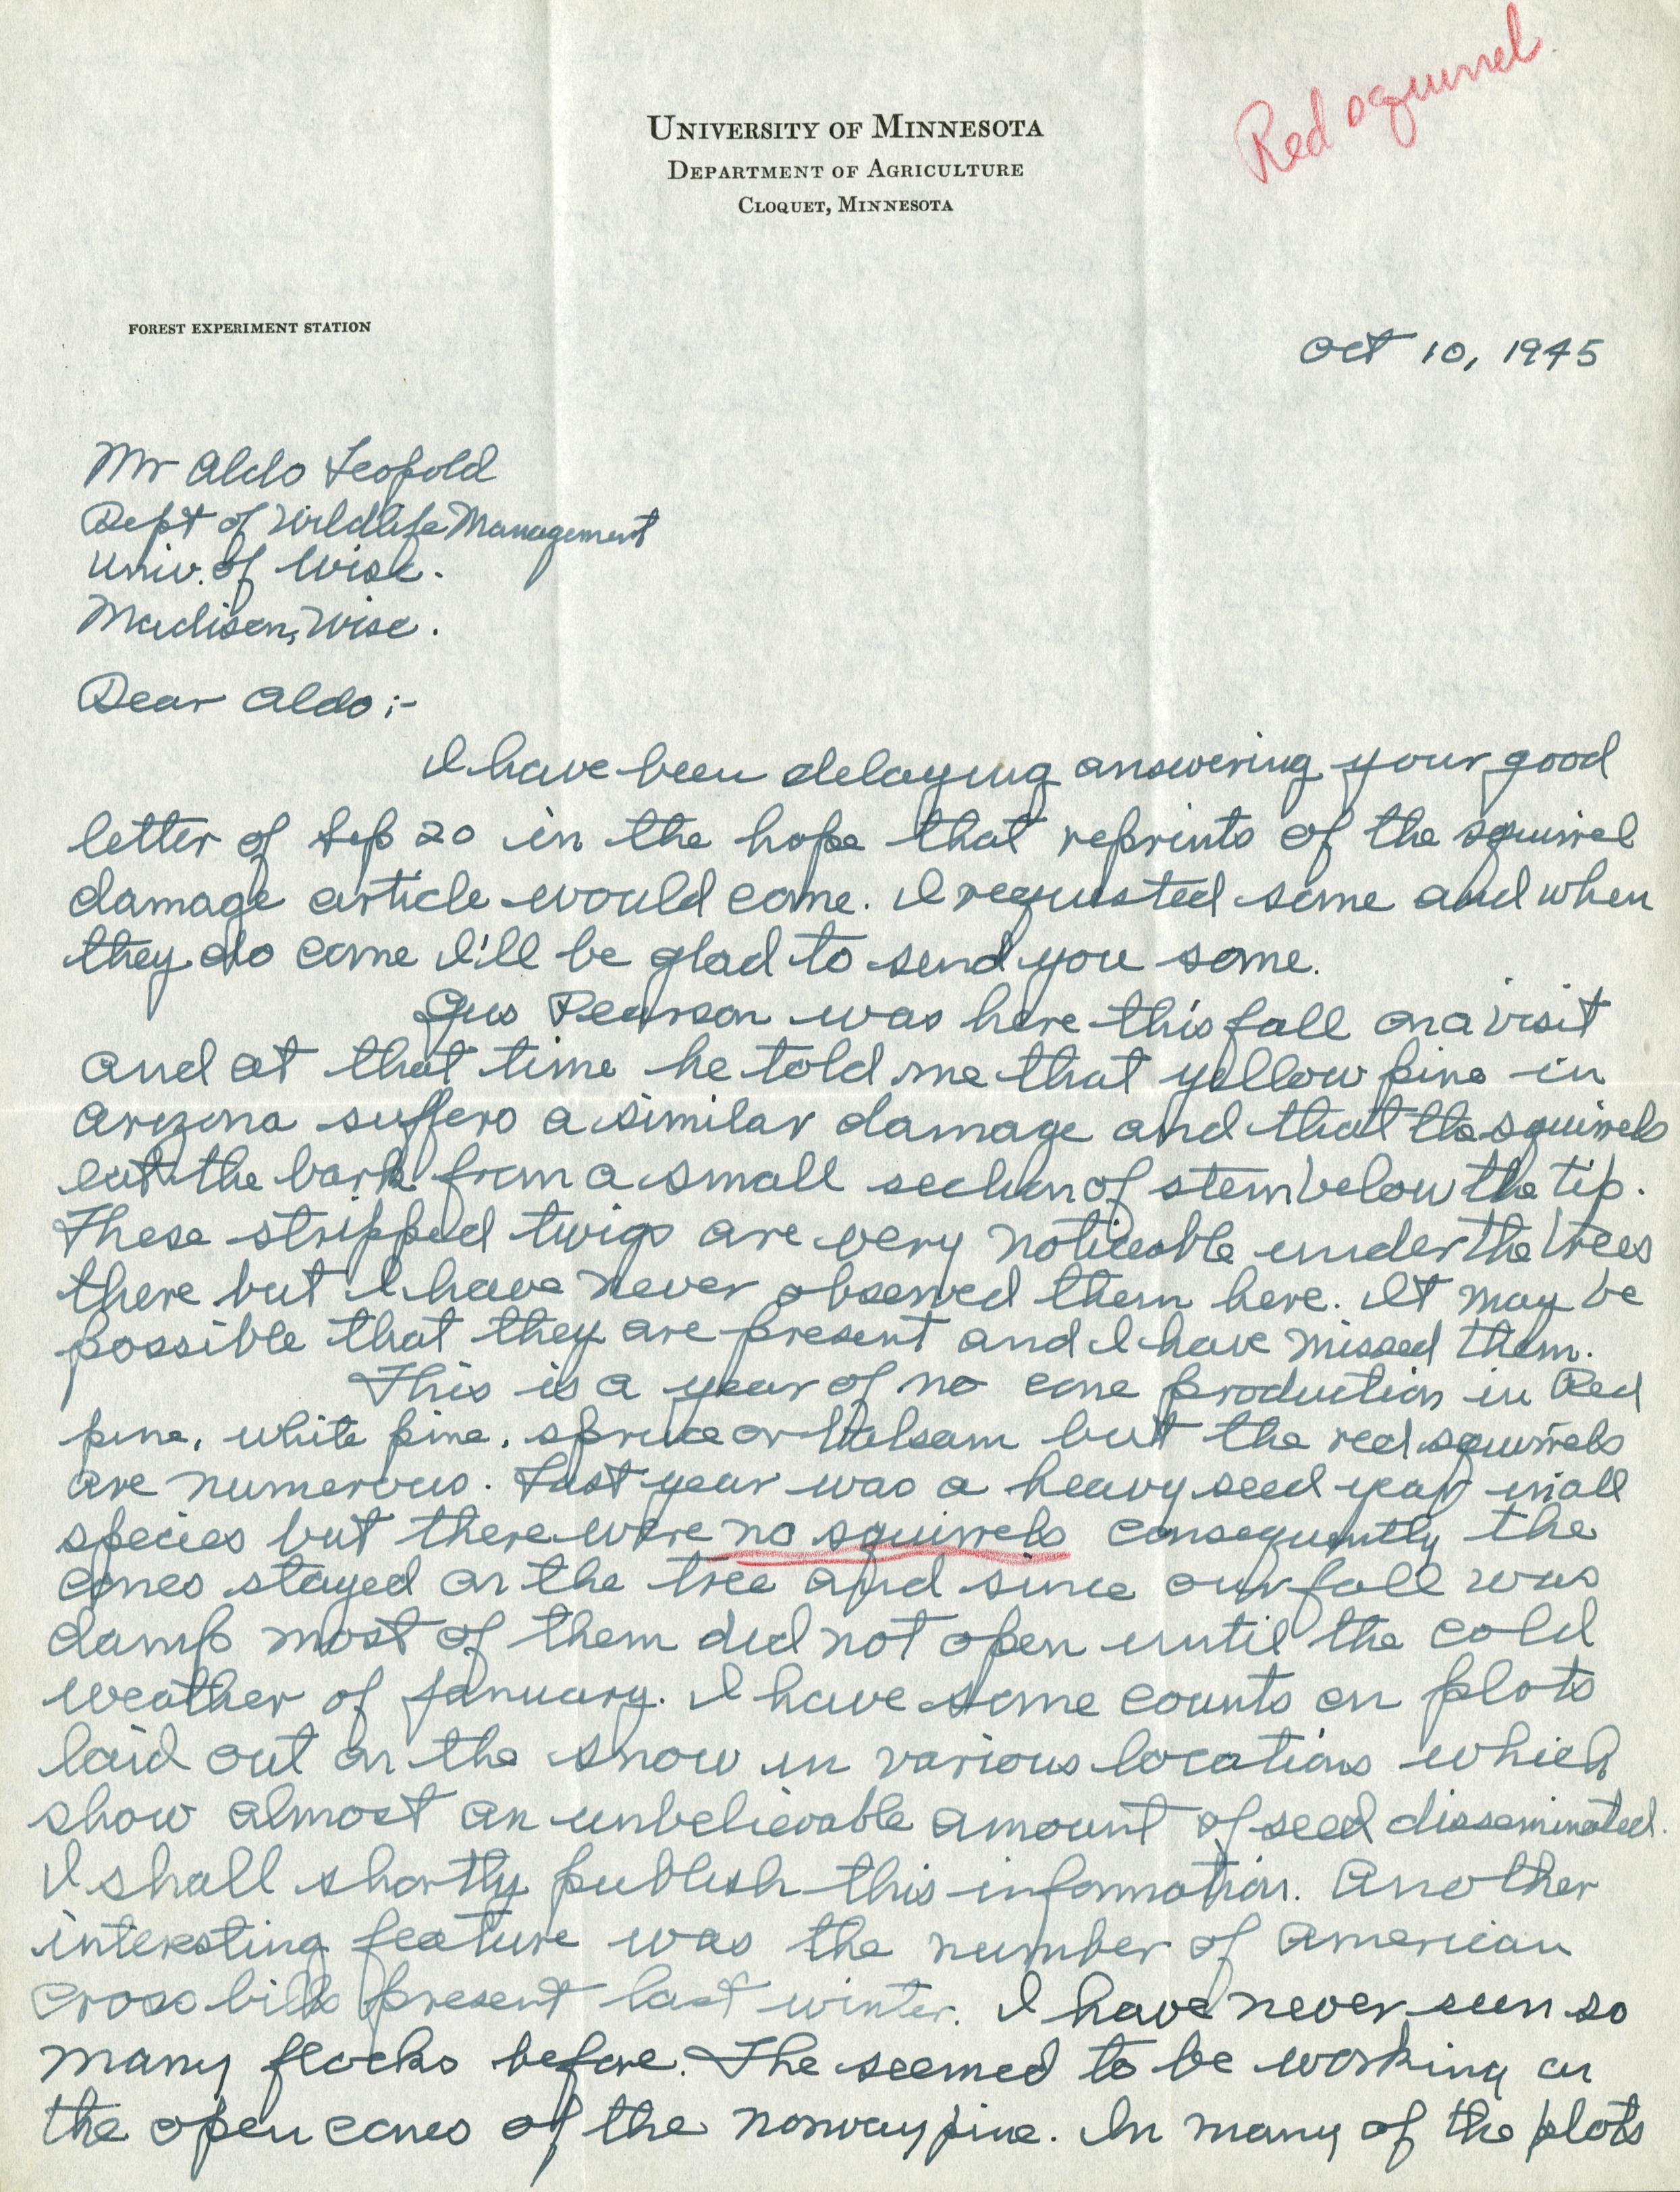 Red squirrel
UNIVERSITY OF MINNESOTA
DEPARTMENT OF AGRICULTURE
CLOQUET, MINNESOTA
FOREST EXPERIMENT STATION
Oct 10, 1945
Mr Aldo Leopold
Dept of Wildlife Management
Univ. of Wisc.
Madison, Wisc.
Dear Aldo:-
I have been delaying answering your good
letter of Sep 20 in the hope that reprints of the squirrel
damage article would come. I requested some and when
they do come I'll be glad to send you some.
Gus Pearson was here this fall on a visit
and at that time he told me that yellow pine in
Arizona suffers a similar damage and that the squirrels
eat the bark from a small section of stem below the tip.
These stripped twigs are very noticeable under the trees
there but I have never observed them here. It may be
possible that they are present and I have missed them.
This is a year of no cone production in Red
pine, white pine, spruce or balsam but the red squirrels
are numerous. Last year was a heavy seed year in all
species but there were no squirrels consequently the
cones stayed on the tree and since our fall was
damp most of them did not open until the cold
weather of January. I have some counts on plots
laid out on the snow in various locations which
show almost an unbelievable amount of seed disseminated.
I shall shortly publish this information. Another
interesting feature was the number of American
Cross bills present last winter. I have never seen so
many flocks before. The seemed to be working on
the open cones of the norway pine. In many of the plots